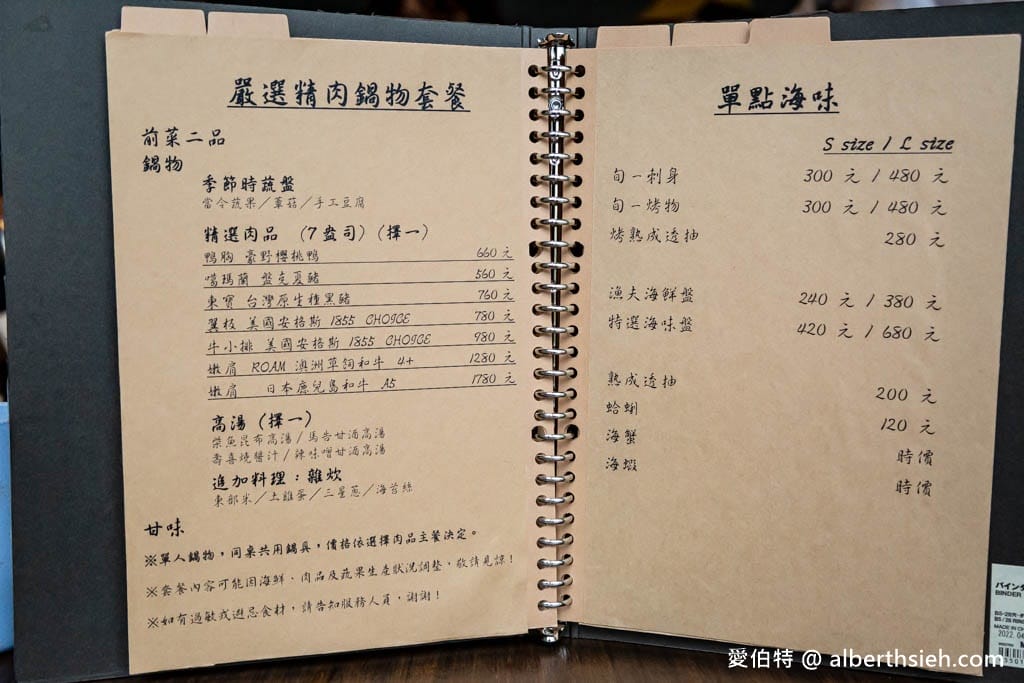 嚴選精肉鍋物套餐
前菜二品
鍋物
季節時蔬盤
當令蔬果／蕈菇／手工豆腐
精選肉品 (7盎司)(擇一)
鴨胸 豪野櫻桃鴨 660元
噶瑪蘭 盤克夏豬 560元
東寶 台灣原生種黑豬 760元
翼板 美國安格斯 1855 CHOICE 780元
牛小排 美國安格斯 1855 CHOICE 980元
嫩肩 ROAM 澳洲草飼和牛 4+ 1280元
嫩肩 日本鹿兒島和牛 A5 1780元
高湯(擇一)
柴魚昆布高湯／馬告甘酒高湯
壽喜燒醬汁／辣味噌甘酒高湯
追加料理：雜炊
東部米／土雞蛋／三星蔥／海苔絲
甘味
※單人鍋物，同桌共用鍋具，價格依選擇肉品主餐決定。
※套餐內容可能因海鮮、肉品及蔬果生產狀況調整，敬請見諒！
※如有過敏或避忌食材，請告知服務人員，謝謝！
單點海味
S size / L size
旬一刺身 300 元 / 480 元
旬一烤物 300 元 / 480 元
烤熟成透抽 280 元
漁夫海鮮盤 240 元 / 380 元
特選海味盤 420 元 / 680 元
熟成透抽 200 元
蛤蜊 120 元
海蟹 時價
海蝦 時價
バインダ
BINDER
MADE IN CH
2022.04
愛伯特 @ alberthsieh.com